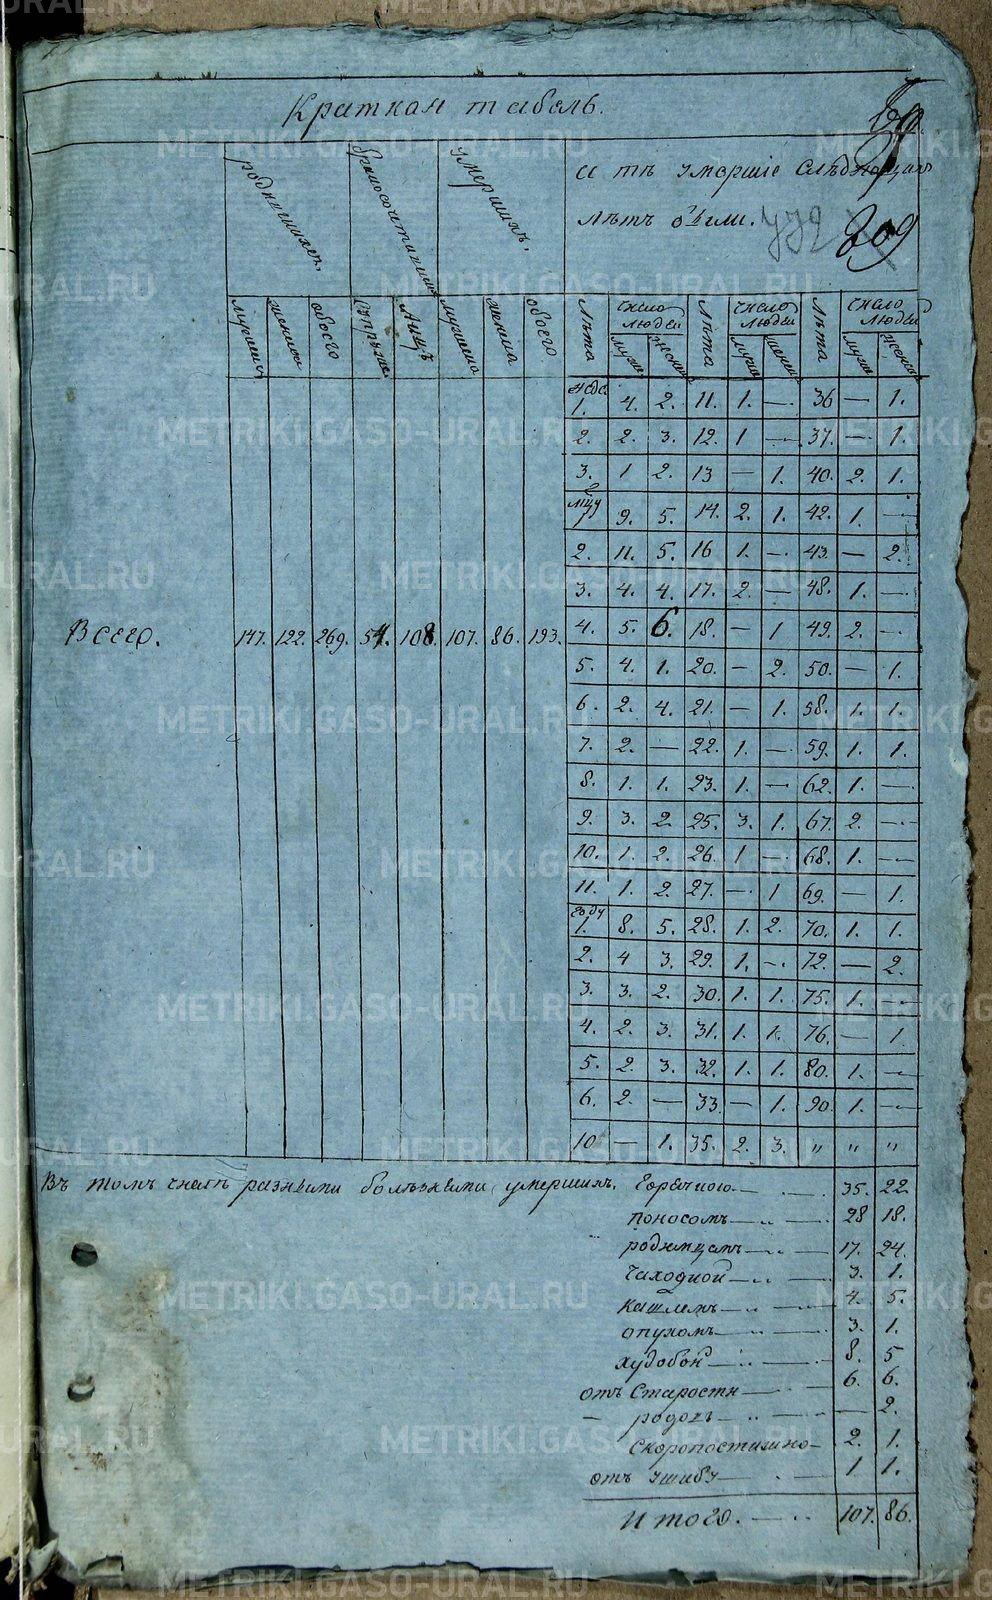 Краткая табель.
209
родившихся. бракосочетавшихся умершихъ. и тѣ умершiе слѣдующихъ
лѣтъ были.
мужеска женска обоего супружс. лицъ мужеска женска обоего
Лѣта число людей Лѣта число людей Лѣта число людей
муже женска муже женска муже женска
неде 1. 4. 2. 11. 1. — 36 — 1.
2. 2. 3. 12. 1 — 37. — 1.
3. 1 2. 13 — 1. 40. 2. 1.
мцу 1 9. 5. 14. 2. 1. 42. 1. —
2. 11. 5. 16 1. — 43. — 2.
3. 4. 4. 17. 2. — 48. 1. —
Всего. 147. 122. 269. 54. 108. 107. 86. 193. 4. 5. 6. 18. — 1 49. 2. —
5. 4. 1. 20. — 2. 50. — 1.
6. 2. 4. 21. — 1. 58. 1. 1.
7. 2. — 22. 1. — 59. 1. 1.
8. 1. 1. 23. 1. — 62. 1. —
9. 3. 2 25. 3. 1. 67. 2. —
10. 1. 2. 26. 1 — 68. 1. —
11. 1. 2. 27. — 1 69. — 1.
году 1. 8. 5. 28. 1. 2. 70. 1. 1.
2. 4 3. 29. 1. — 72. — 2.
3. 3. 2. 30. 1. 1. 75. 1. —
4. 2. 3. 31. 1. 1. 76. — 1.
5. 2. 3. 32. 1. 1. 80. 1. —
6. 2. — 33. — 1. 90. 1. —
10 — 1. 35. 2. 3. " " "
Въ томъ числѣ разными болѣзнями умершихъ. Горячкою — 35. 22
поносомъ — 28 18.
родимцамъ — 17. 24.
чахоткой — 3. 1.
кашлемъ — 4. 5.
опухомъ — 3. 1.
худобой — 8. 5
отъ Старости — 6. 6.
— родовъ — — 2.
Скоропостижно — 2. 1.
отъ ушибу — 1 1.
Итого. — 107. 86.
METRIKI.GASO-URAL.RU